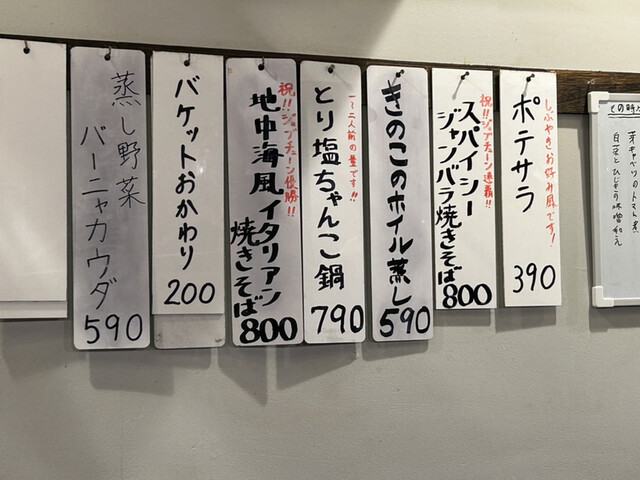 芽キャベツトマト煮
ポテサラ
しぶやきお好み風です!
390
祝!!ジョブチューン連覇!!
スパイシー
ジャンバラ焼きそば
800
きのこのホイル蒸し
590
一〜二人前の量です!!
とり塩ちゃんこ鍋
790
祝!!ジョブチューン優勝!!
地中海風イタリアン
焼きそば
800
バケットおかわり
200
蒸し野菜
バーニャカウダ
590